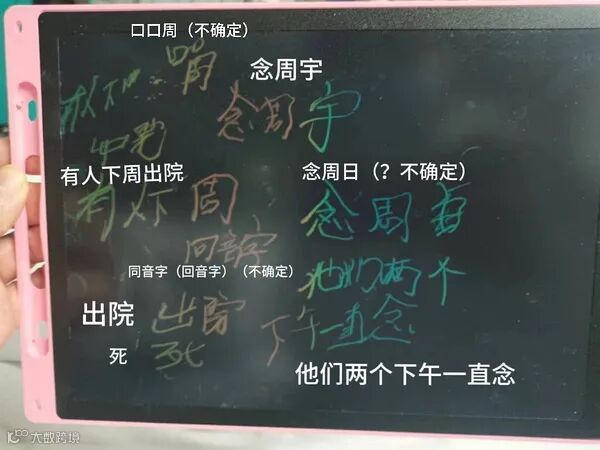 口口周（不确定）
念周宇
念周宇
有人下周出院
念周日（？不确定）
有人下周
念周
回音字
同音字（回音字）（不确定）
他们两个
出院
出院
下午一直念
死
死
他们两个下午一直念
大数跨境